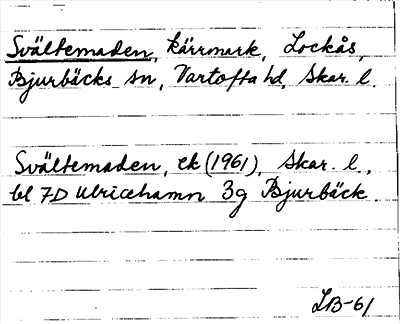 Svältemaden, kärrmark, Lockås,
Bjurbäcks sn, Vartofta hd, Skar. l.
Svältemaden, ek (1961), Skar. l.,
bl 7D Ulricehamn 3g Bjurbäck.
LB-61